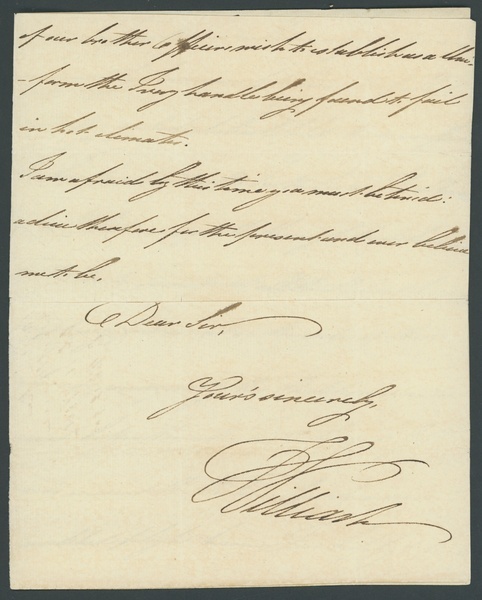 of our brother Officers wish to establish as a Uni-
-form the Ivory handle being found to fail
in hot climates.
I am afraid by this time you must be tired:
adieu therefore for the present and ever believe
me to be,
Dear Sir,
Your's sincerely,
William